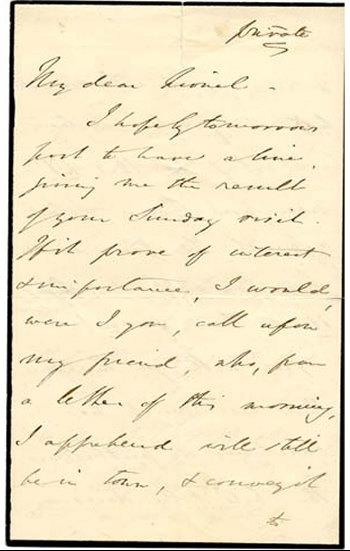 private
My dear Lionel -
I hope by tomorrows
post to have a line,
giving me the result
of your Sunday visit.
If it prove of interest
& importance, I would,
were I you, call upon
my friend, who, from
a letter of this morning,
I apprehend will still
be in town, & convey it
to